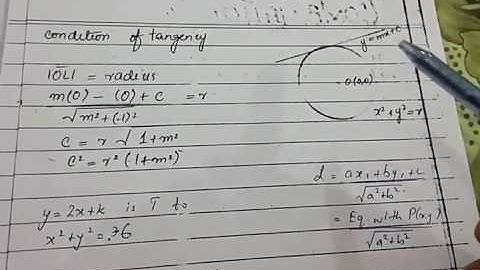 condition of tangency
|OL| = radius
m(0) - (0) + c = r
√m² + (-1)²
c = r √1+m²
c² = r² (1+m²)
y = 2x+k is T to
x² + y² = 36
y = mx+c
O(0,0)
x² + y² = r
d = ax₁ + by₁ + c
√a²+b²
= Eq with P(x,y)
√a²+b²